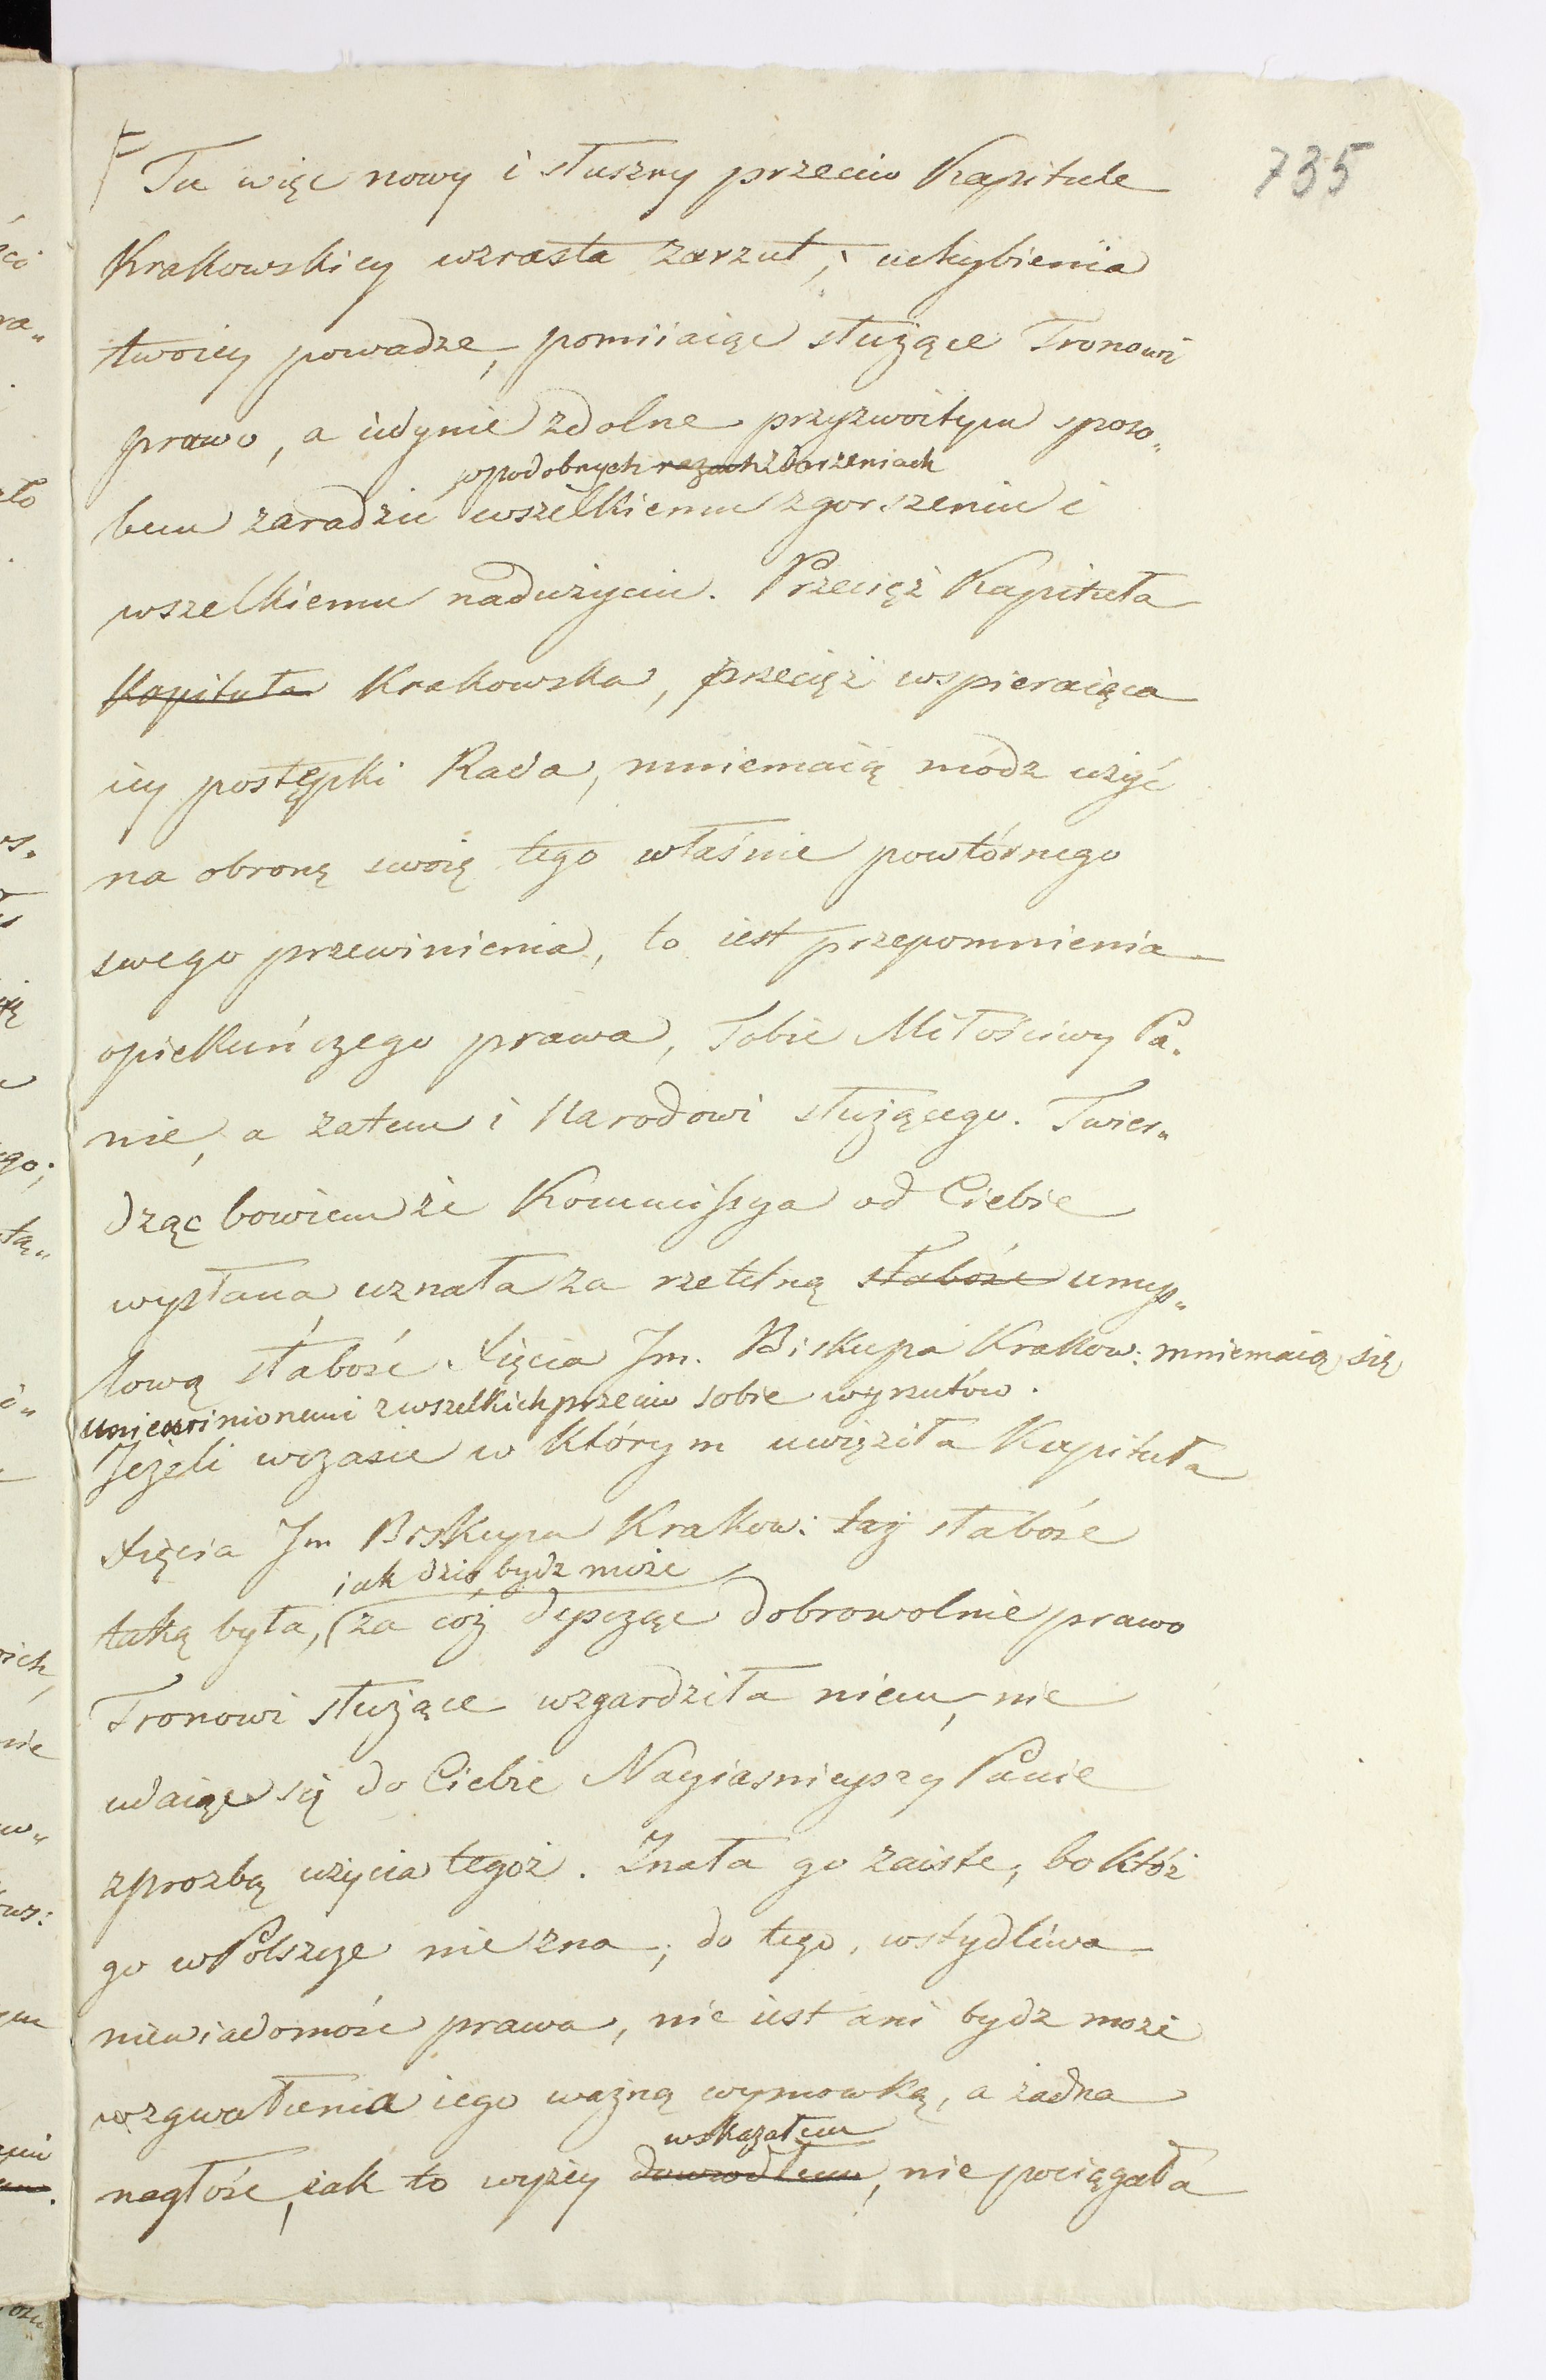 735
Tu więc nowy i słuszny przeciw Kapitule
Krakowskiey wzrasta zarzut, uchybienia
twoiey powadze, pomiiaiąc służące Tronowi
prawo, a iedynie zdolne przyzwoitym sposo„
w podobnych razach zdarzeniach
bem zaradzić wszelkiemu zgorszeniu i
wszelkiemu nadużyciu. Przecięż Kapituła
Kapituła Krakowska, przecięż wspieraiąca
iey postępki Rada, mniemaią módz użyć
na obronę swoię tego właśnie powtórnego
swego przewinienia, to iest przepomnienia
opiekuńczego prawa, Tobie Miłościwy Pa„
nie, a zatem i Narodowi służącego. Twier„
dząc bowiem że Kommissya od Ciebie
wysłana, uznała za rzetelną słabość umys„
łową słabość Xięcia Jm. Biskupa Krakow: mniemaią się
uniewinionemi z wszelkich przeciw sobie wyrzutów.
Jeżeli wczasie w którym uwięziła Kapituła
Xięcia Jm Biskupa Krakow: taż słabość
iak dziś bydz może
taką była, za cóż depcząc dobrowolnie prawo
Tronowi służące wzgardziła niem, nie
udaiąc się do Ciebie Nayiasnieyszy Panie
z prozbą użycia tegoż. Znała go zaiste, bo któż
go w Polszcze nie zna; do tego, wstydliwa
niewiadomość prawa, nie iest ani bydz może
zgwałcenia iego ważną wymowką, a żadna
wskazałem
nagłość, iak to wyżey dowodłem, nie pociągała